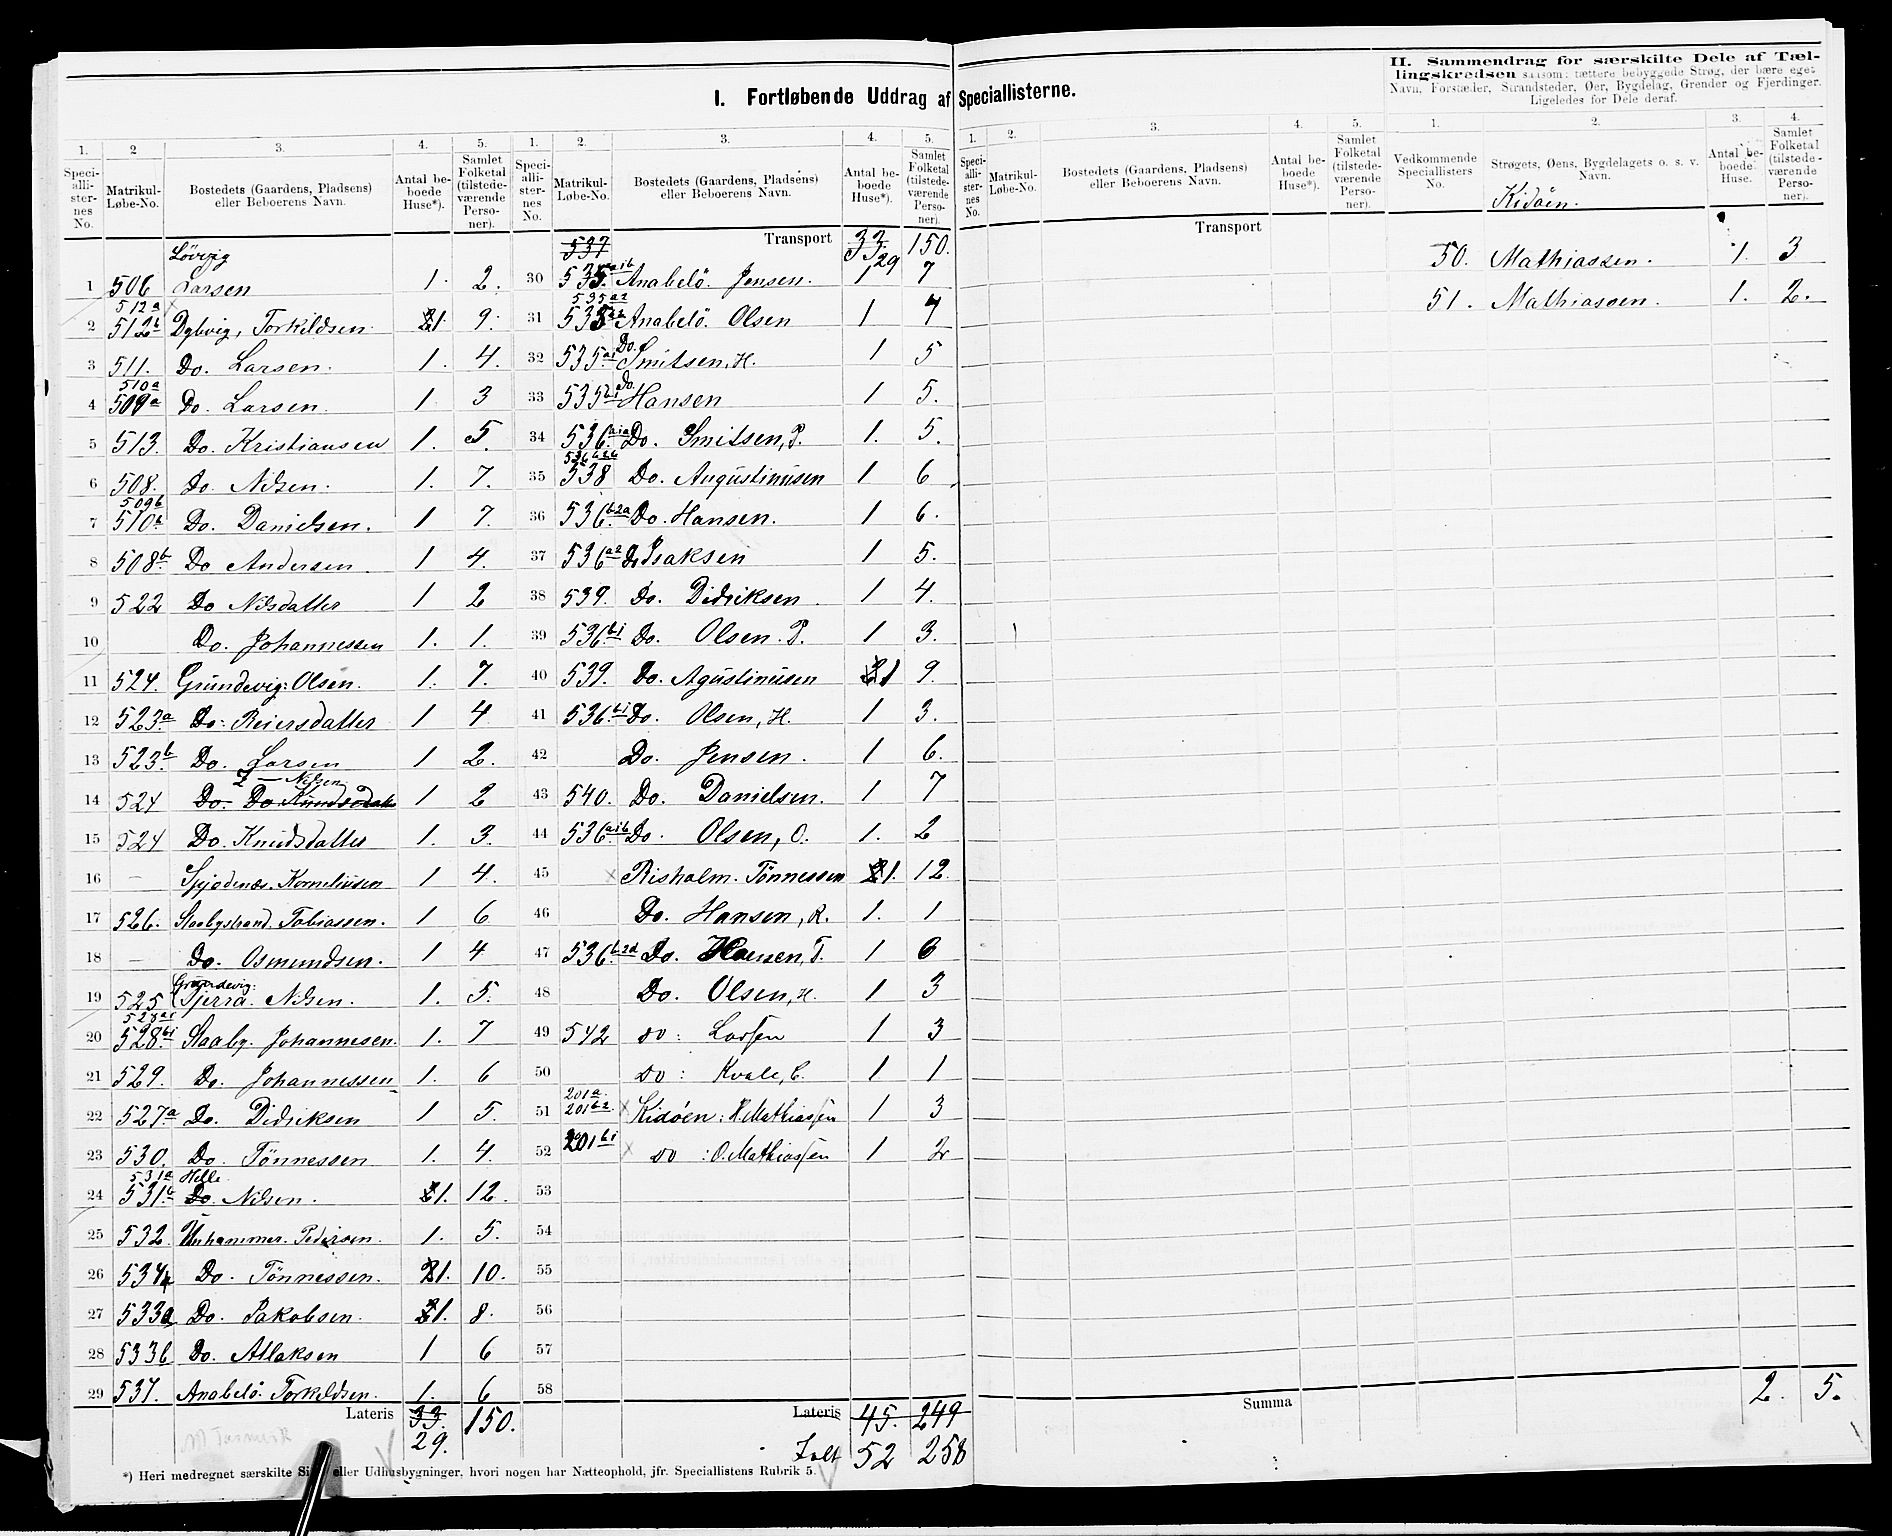 I. Fortløbende Uddrag af Speciallisterne.
II. Sammendrag for særskilte Dele af Tæl-
lingskredsen saasom: tættere bebyggede Strøg, der bære eget
Navn, Forstæder, Strandsteder, Øer, Bygdelag, Grender og Fjerdinger.
Ligeledes for Dele deraf.
1. 2 3. 4. 5. 1. 2. 3. 4. 5. 1. 2. 3. 4. 5. 1. 2. 3. 4.
Speci-alli-ster-nes No. Matrikul-Løbe-No. Bostedets (Gaardens, Pladsens) eller Beboerens Navn. Antal be-boede Huse*). Samlet Folketal (tilstede-værende Perso-ner).
Speci-alli-ster-nes No. Matrikul-Løbe-No. Bostedets (Gaardens, Pladsens) eller Beboerens Navn. Antal be-boede Huse*). Samlet Folketal (tilstede-værende Perso-ner).
Speci-alli-ster-nes No. Matrikul-Løbe-No. Bostedets (Gaardens, Pladsens) eller Beboerens Navn. Antal be-boede Huse*). Samlet Folketal (tilstede-værende Perso-ner).
Vedkommende Speciallisters No. Strøgets, Øens, Bygdelagets o. s. v. Navn. Antal be-boede Huse. Samlet Folketal (tilstede-værende Perso-ner).
Løvig
1 506 Larsen 1. 2.
512a
2 512b Dybvig, Torkildsen 1 9.
3 511. Do. Larsen. 1. 4.
510a
4 509a Do. Larsen. 1 3
5 513. Do. Kristiansen 1. 5.
6 508. Do. Nilsen. 1. 7.
509b
7 510a Do. Danielsen. 1 7.
8 508b Do Andersen. 1 4.
9 522 Do Nilsdatter 1 2
10 Do. Johannessen 1. 1.
11 524. Grundevig: Olsen. 1. 7.
12 523a Do: Reiersdatter 1 4
13 523b Do. Larsen 1 2.
Nilsen
14 524 Do. Do Knudsdatter 1 2
15 524 Do. Knudsdatter 1. 3.
16 — Korneliusen 1 4.
17 526. Tobiassen. 1 6
18 — Do. Osmundsen. 1 4
Grundevig:
19 525 Nilsen. 1. 5.
528a1
20 528b1 Staaby. Johannesen. 1. 7
21 529. Do. Johannessen 1. 6
22 527a Do. Didriksen 1 5.
23 530. Do. Tönnessen 1. 4.
531a Helle
24 531b Do. Nilsen. 1. 12.
25 532 Unhammer. Pedersen. 1. 5.
26 534 Do. Tönnessen. 1. 10.
27 533a Do. Jakobsen. 1. 8.
28 533b Do. Atlaksen 1 6
29 537. Anabelö. Torkildsen. 1. 6
Lateris 33. 150.
29.
537 Transport 33. 150.
29
30 535a1b Anabelö. Jensen. 1 7
535a2
31 Anabelö. Olsen 1 4
32 535a1 Do. Smitsen, H. 1 5
33 535b1 Do. Hansen 1 5.
34 536a1a Do. Smitsen, P. 1. 5.
536b2b
35 538 Do. Augustinusen 1 6
36 536b2a Do. Hansen. 1 6.
37 536a2 Do Isaksen 1 5.
38 539. Do. Didriksen. 1 4.
39 536b1 Do. Olsen. P. 1 3.
40 539. Do. Agustinusen 1 9.
41 536b1 Do. Olsen, H. 1 3.
42 Do. Jensen. 1 6.
43 540. Do. Danielsen. 1 7
44 536a1b Do. Olsen, O. 1. 2
45 × Risholm. Tönnessen 1. 12.
46 Do. Hansen, R. 1. 1
47 536b2d Do. Hansen, T. 1 6
48 Do. Olsen, H. 1 3
49 542 do: Larsen 1 3
50 do: Kvale, C. 1 1
201a
51 201b2 × Kidöen: H. Mathiassen 1 3
52 201b1 × do: O. Mathiassen 1 2
53
54
55
56
57
58
Lateris 45. 249
Ialt 52 258
Transport
Summa
Kidöen.
50. Mathiassen. 1. 3
51. Mathiassen. 1. 2.
2. 5.
*) Heri medregnet særskilte eller Udhusbygninger, hvori nogen har Natteophold, jfr. Speciallistens Rubrik 5.